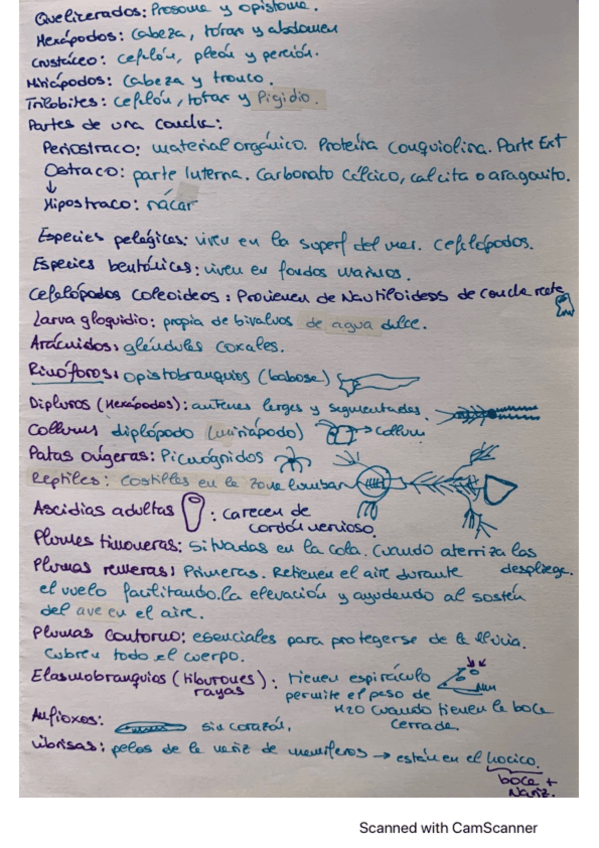 Quelicerados: Prosoma y opistoma.
Hexápodos: Cabeza, tórax y abdomen
Crustáceo: cefalón, pleón y pereión.
Miriápodos: Cabeza y tronco.
Trilobites: cefalón, tórax y Pigidio.
Partes de una concha:
Periostraco: material orgánico. Proteína conquiolina. Parte Ext
Ostraco: parte interna. Carbonato cálcico, calcita o aragonito.
↓
Hipostraco: nácar
Especies pelágicas: viven en la superf del mar. Cefalópodos.
Especies bentónicas: viven en fondos marinos.
Cefalópodos Coleoideos: Provienen de Nautiloideos de concha recta
Larva gloquidio: propia de bivalvos de agua dulce.
Arácnidos: glándulas coxales.
Rinóforos: opistobranquios (babosa)
Dipluros (Hexápodos): antenas largas y segmentadas.
Collum diplópodo (miriápodo) → collum
Patas ovígeras: Picnogónidos
Reptiles: Costillas en la zona lumbar
Ascidias adultas : carecen de
cordón nervioso.
Plumas timoneras: Situadas en la cola. Cuando aterriza las
despliega.
Plumas remeras: Primeras. Retienen el aire durante
el vuelo facilitando la elevación y ayudando al sostén
del ave en el aire.
Plumas contorno: esenciales para protegerse de la lluvia.
Cubren todo el cuerpo.
Elasmobranquios (tiburones rayas): tienen espiráculo
permite el paso de
H2O cuando tienen la boca
cerrada.
Anfioxos: sin corazón.
Vibrisas: pelos de la nariz de mamíferos → están en el hocico.
boca +
Nariz.
Scanned with CamScanner